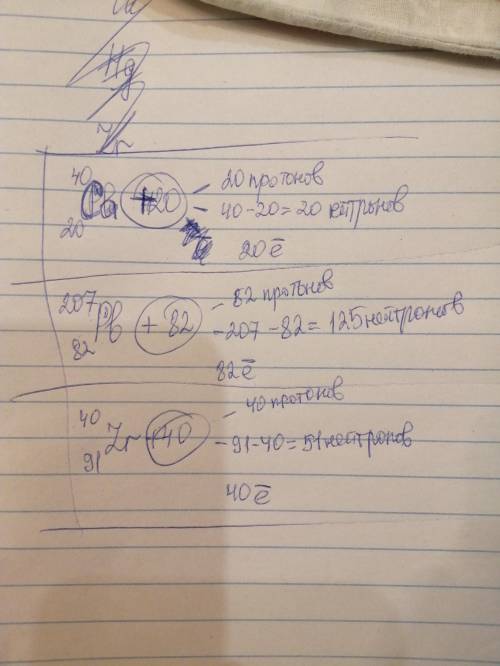 Hg
Zr
40
20
Ca +20 - 20 протонов
- 40-20=20 нейтрнов
20 ē
207
82
Pb +82 - 82 протонов
- 207-82=125 нейтронов
82 ē
40
91
Zr +40 - 40 протонов
- 91-40=51 нейтронов
40 ē